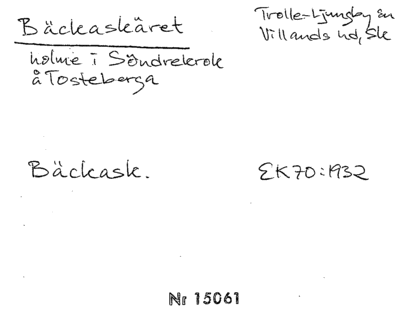 Bäckaskäret
Trolle-Ljungby sn
Villands hd, Sk
holme i Söndrekrok
å Tosteberga
Bäckask.
EK70:1932
Nr 15061